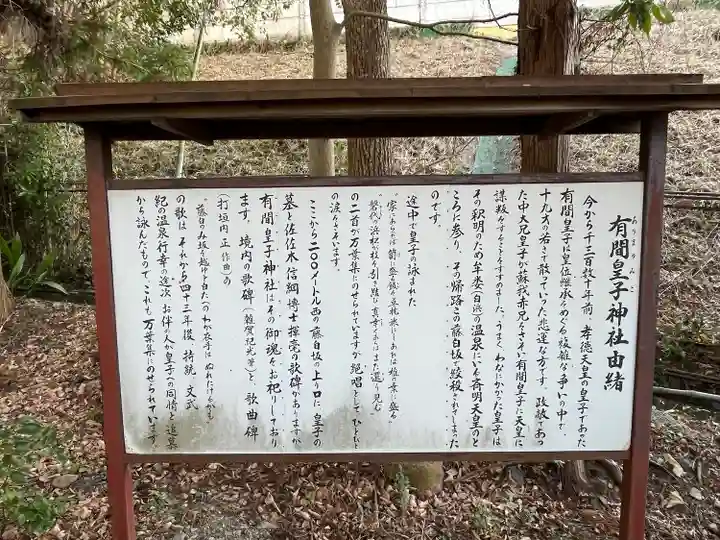 有間皇子神社由緒
ありまのみこ
今から千三百数十年前、孝徳天皇の皇子であった
有間皇子は皇位継承をめぐる複雑な争いの中で、
十九才の若さで散っていった悲運な方です。政敵であっ
た中大兄皇子が蘇我赤兄をさそい有間皇子に天皇に
謀叛をすることをすすめました。うまくわなにかかった皇子は
その釈明のため牟婁(白浜)の温泉にいる斉明天皇のと
ころに参り、その帰路この藤白坂で絞殺されてしまった
のです。
途中で皇子の詠まれた
"家にあれば笥に盛る飯を草枕旅にしあれば椎の葉に盛る"
"磐代の浜松が枝を引き結び真幸くあらばまた還り見む"
の二首が万葉集にのせられていますが絶唱として、ひとびと
の涙をさそいます。
ここから二〇〇メートル西の藤白坂の上り口に、皇子の
墓と佐佐木信綱博士揮毫の歌碑がありますが、
有間皇子神社は、その御魂をお祀りしており
ます。境内の歌碑(雑賀紀光筆)と、歌曲碑
(打垣内 正 作曲)の
"藤白の み坂を越ゆと 白たへの わが衣手は ぬれにけるかも"
の歌は、それから四十三年後、持統、文武
紀の温泉行幸の途次、お伴の人が皇子への同情と追慕
から詠んだもので、これも、万葉集にのせられています。